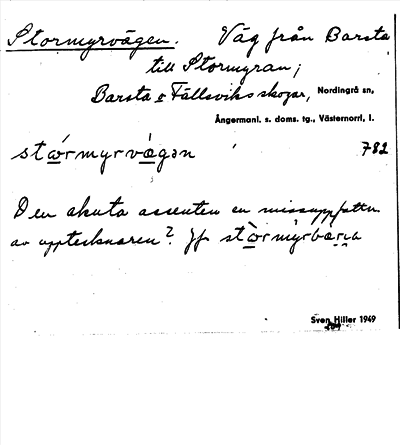 Stormyrvägen. Väg från Barsta
till Stormyran;
Barsta o Fällsviks skogar, Nordingrå sn,
Ångermanl. s. doms. tg., Västernorrl. l.
782
Den akuta accenten en missuppfattn.
av upptecknaren? Jfr
Sven Hiller 1949